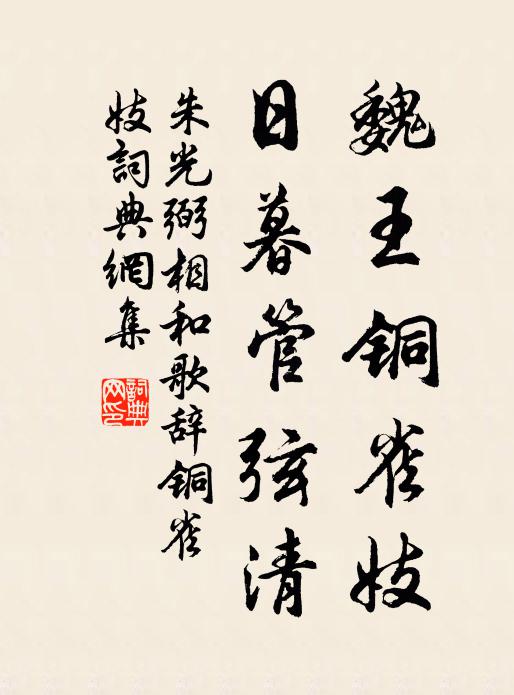 魏王铜雀妓
日暮管弦清
朱光弼相和歌辞铜雀
妓詞典網集
詞典網印